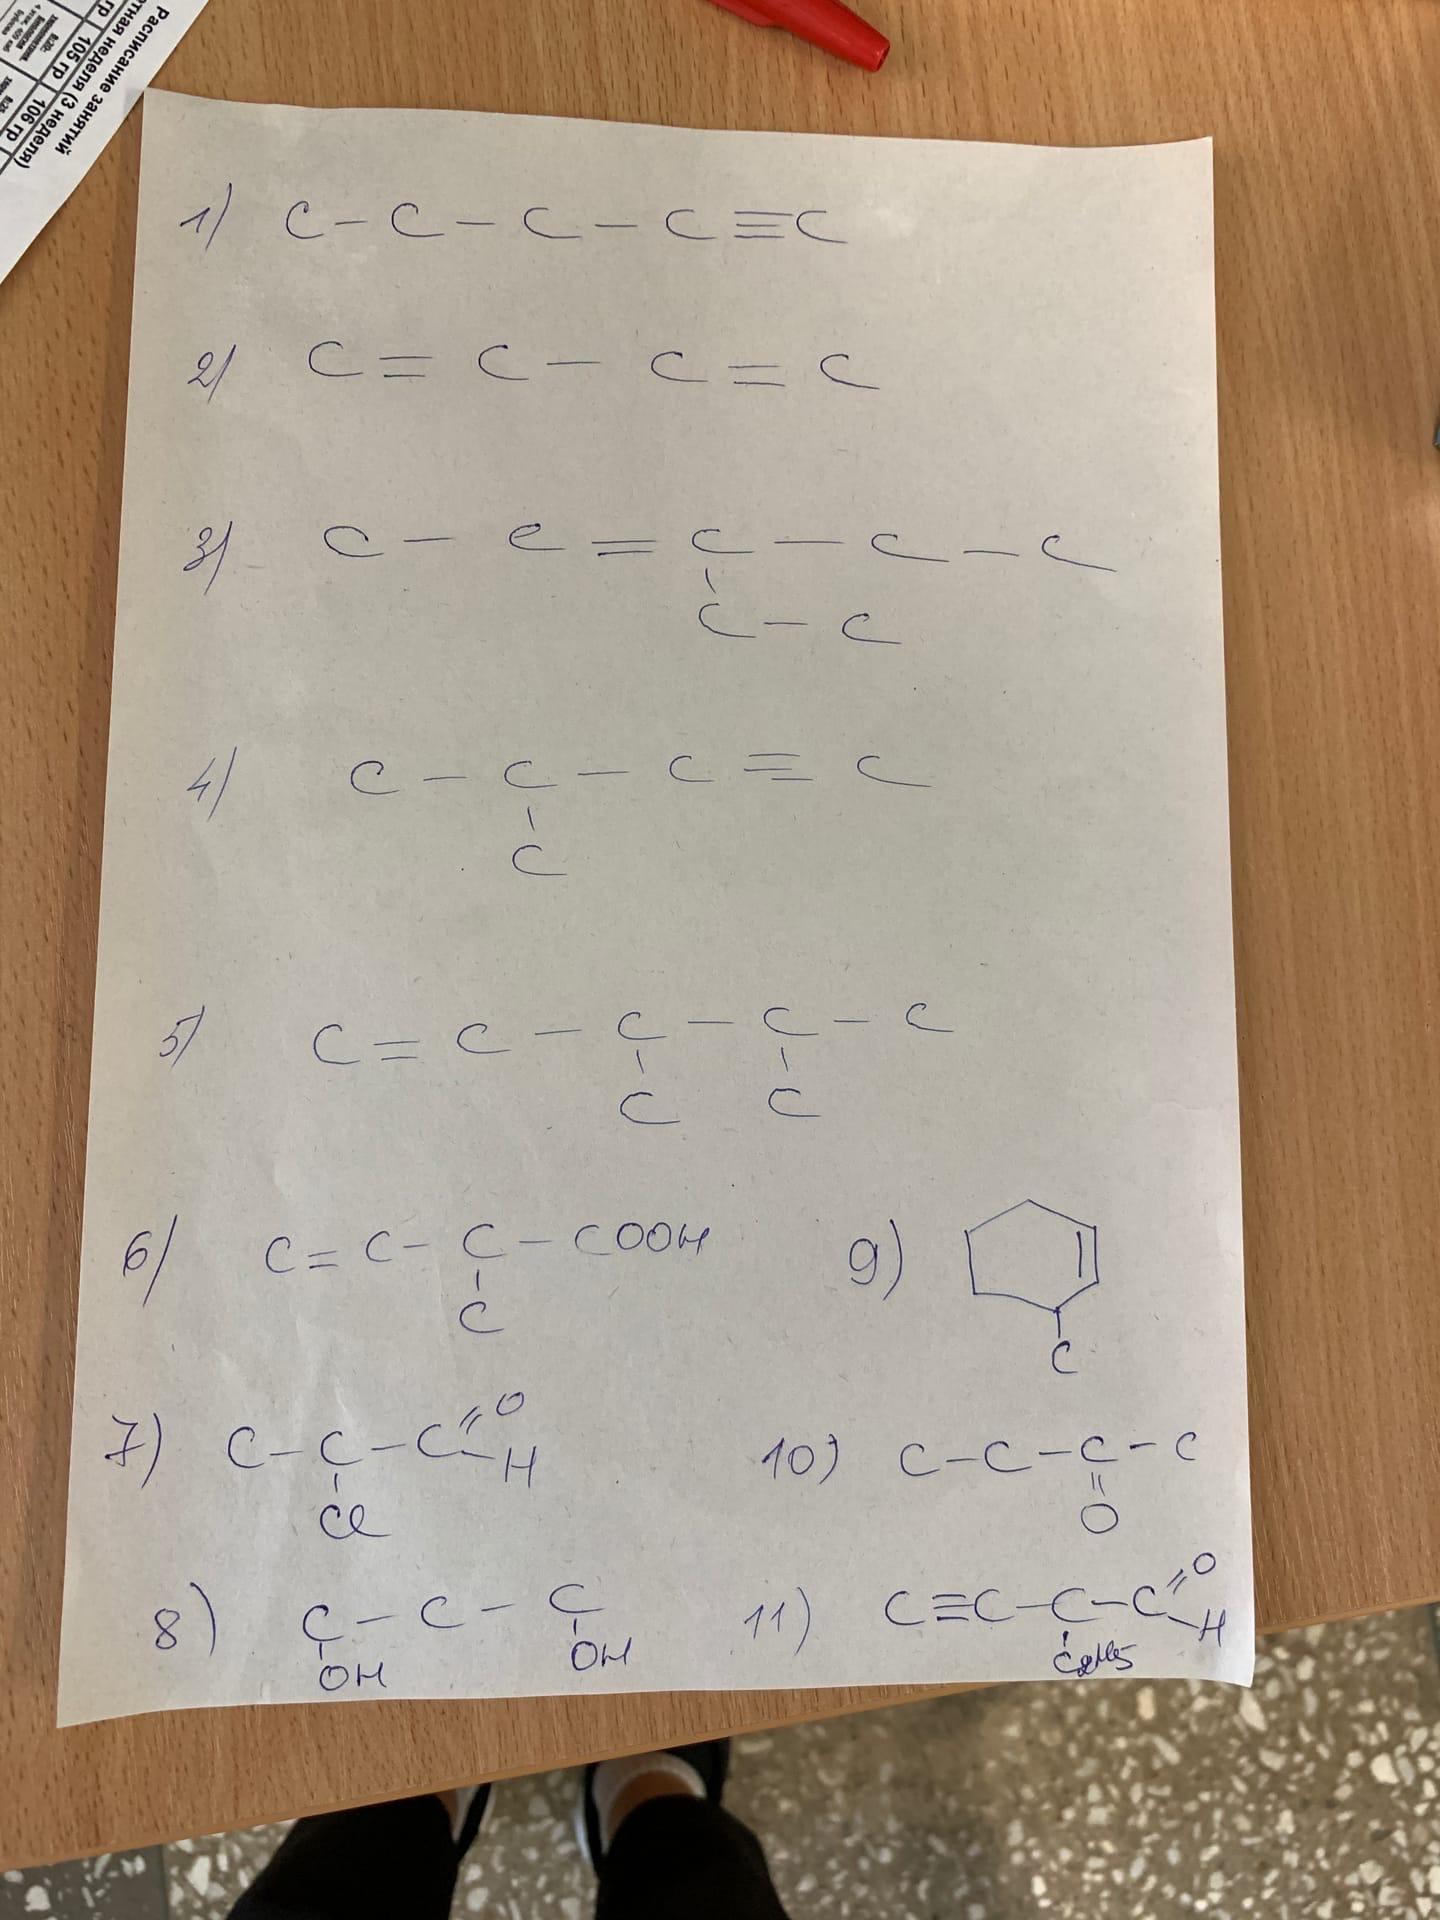 Расписание занятий
тная неделя (3 неделя)
гр
105 гр
106 гр
1) C - C - C - C ≡ C
2) C = C - C = C
3) C - C = C - C - C
C - C
4) C - C - C ≡ C
C
5) C = C - C - C - C
C C
6) C = C - C - COOH
C
9)
C
7) C - C - C = O
H
Cl
10) C - C - C - C
O
8) C - C - C
OH OH
11) C ≡ C - C - C = O
H
C2H5